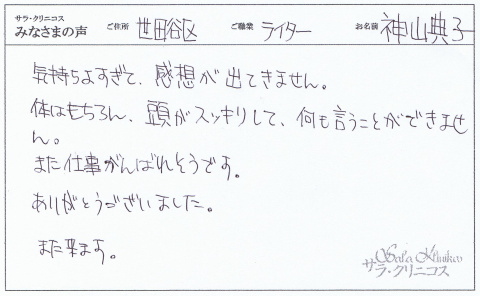 サラ・クリニコス
みなさまの声 ご住所 世田谷区 ご職業 ライター お名前 神山典子
気持ちよすぎて、感想が出てきません。
体はもちろん、頭がスッキリして、何も言うことができませ
ん。
また仕事がんばれそうです。
ありがとうございました。
また来ます。
Sala Klinikos
サラ・クリニコス